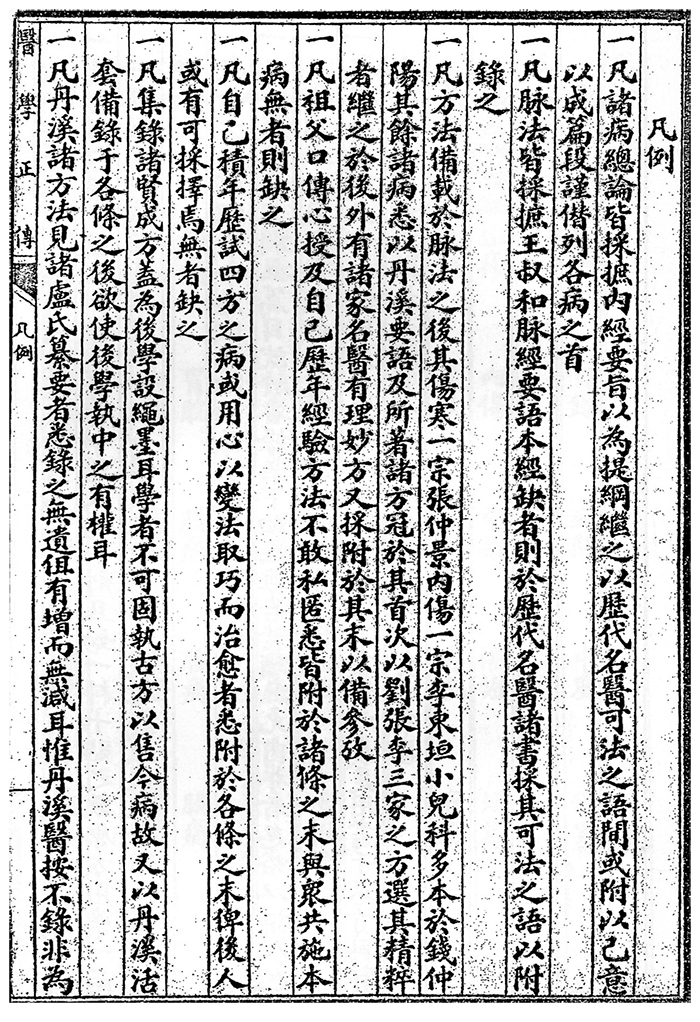 凡例
一凡諸病總論皆採摭內經要旨以為提綱繼之以歷代名醫可法之語間或附以己意
以成篇段謹僭列各病之首
一凡脉法皆採摭王叔和脉經要語本經缺者則於歷代名醫諸書採其可法之語以附
錄之
一凡方法備載於脉法之後其傷寒一宗張仲景內傷一宗李東垣小兒科多本於錢仲
陽其餘諸病悉以丹溪要語及所著諸方冠於其首次以劉張李三家之方選其精粹
者繼之於後外有諸家名醫有理妙方又採附於其末以備參攷
一凡祖父口傳心授及自己歷年經驗方法不敢私匿悉皆附於諸條之末與眾共施本
病無者則缺之
一凡自己積年歷試四方之病或用心以變法取巧而治愈者悉附於各條之末俾後人
或有可採擇焉無者缺之
一凡集錄諸賢成方蓋為後學設繩墨耳學者不可固執古方以售今病故又以丹溪活
套備錄于各條之後欲使後學執中之有權耳
一凡丹溪諸方法見諸盧氏纂要者悉錄之無遺但有增而無減耳惟丹溪醫按不錄非為
醫學正傳
凡例